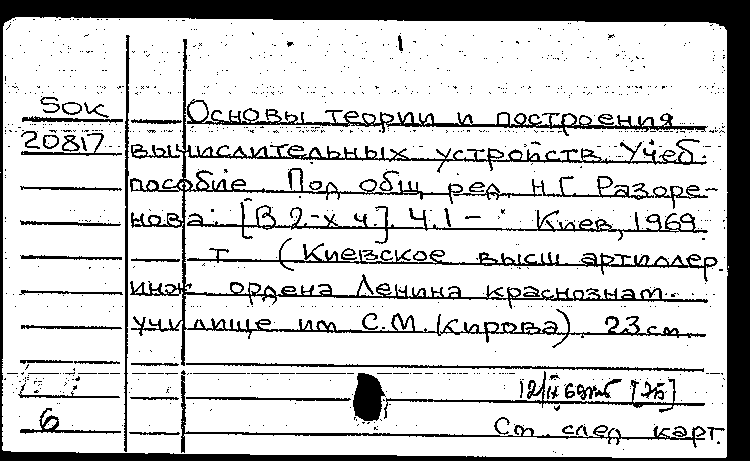 1
SOK Основы теории и построения
20817 вычислительных устройств. Учеб.
пособие. Под общ. ред. Н.Г. Разоре-
нова. [В 2-х ч.]. Ч.1 - Киев, 1969.
т. (Киевское высш. артиллер.
инж. ордена Ленина краснознам.
училище им. С.М. Кирова). 23 см.
6 См. след. карт.